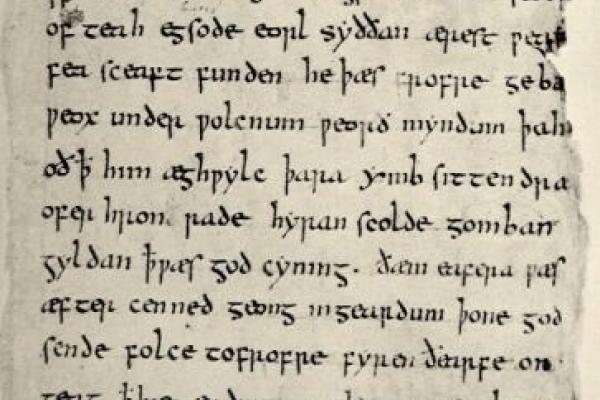 of teah egsode eorl syððan ærest ƿear
fea sceaft funden he þæs frofre geba
ƿeox under ƿolcnum ƿeorð myndum þah
oð ꝥ him æghƿylc þara ymb sittendra
ofer hron rade hyran scolde gomban
gyldan ꝥ ƿæs god cyning. ðæm eafera ƿæs
æfter cenned geong in geardum þone god
sende folce tofrofre fyren ðearfe on